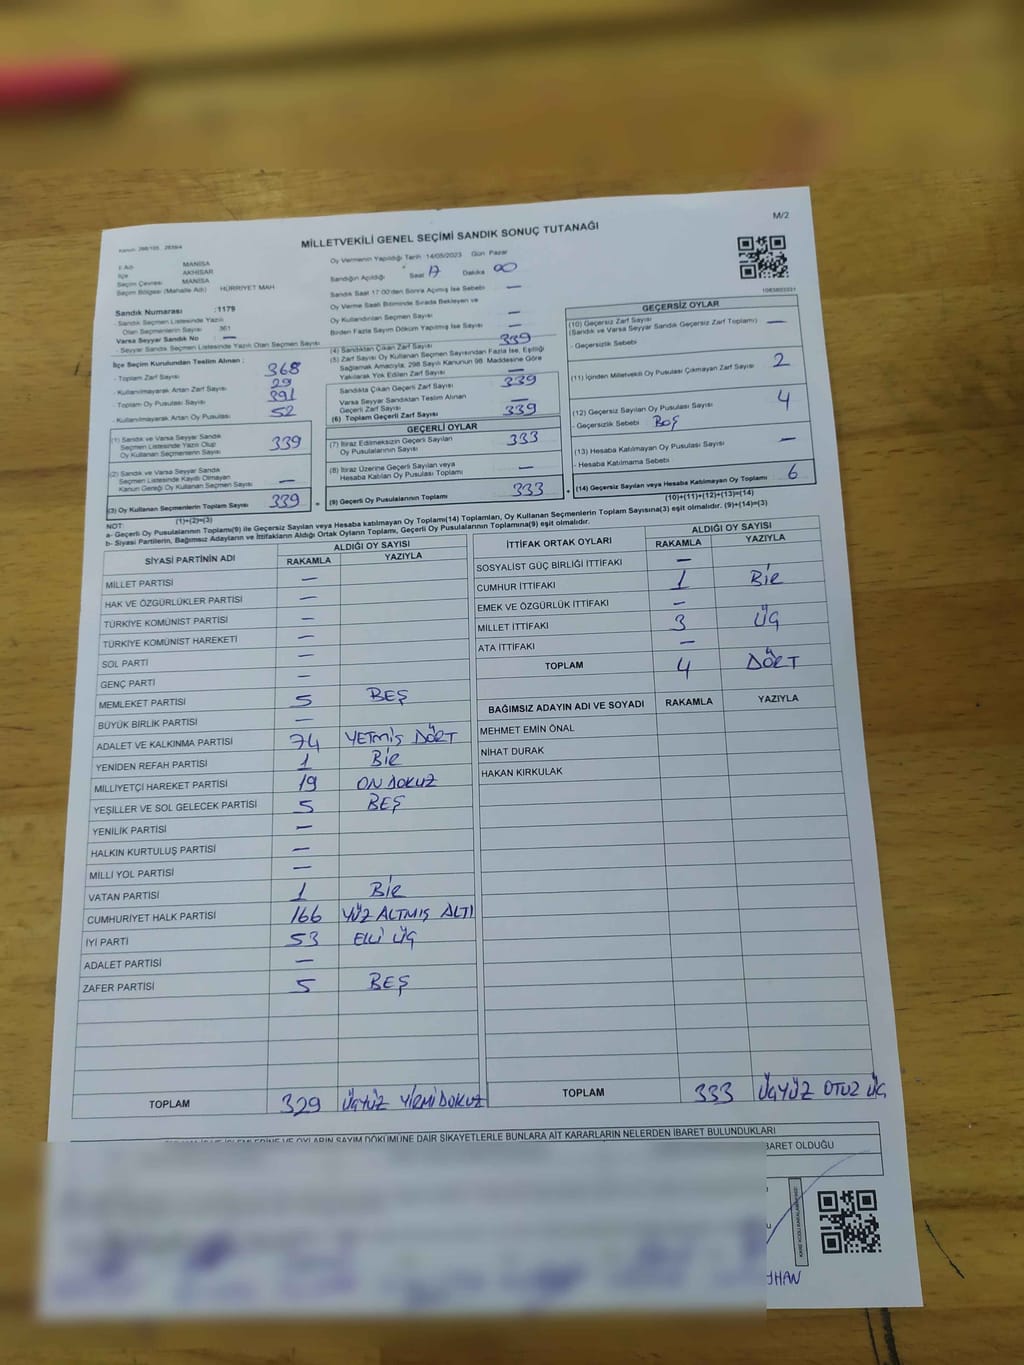 M/2
MİLLETVEKİLİ GENEL SEÇİMİ SANDIK SONUÇ TUTANAĞI
İl Adı MANİSA
İlçe AKHİSAR
Seçim Çevresi MANİSA
Seçim Bölgesi (Mahalle Adı) HÜRRİYET MAH
Oy Vermenin Yapıldığı Tarih 14/05/2023 Gün Pazar
Sandığın Açıldığı Saat 17 Dakika 00
Sandık Saat 17:00'den Sonra Açılmış İse Sebebi —
Oy Verme Saati Bitiminde Sırada Bekleyen ve
Oy Kullandırılan Seçmen Sayısı —
Birden Fazla Sayım Döküm Yapılmış İse Sayısı —
Sandık Numarası : 1179
- Sandık Seçmen Listesinde Yazılı
Olan Seçmenlerin Sayısı 361
Varsa Seyyar Sandık No —
- Seyyar Sandık Seçmen Listesinde Yazılı Olan Seçmen Sayısı
İlçe Seçim Kurulundan Teslim Alınan ;
- Toplam Zarf Sayısı 368
- Kullanılmayarak Artan Zarf Sayısı 29
Toplam Oy Pusulası Sayısı 391
- Kullanılmayarak Artan Oy Pusulası 52
(1) Sandık ve Varsa Seyyar Sandık
Seçmen Listesinde Yazılı Olup
Oy Kullanan Seçmenlerin Sayısı 339
(2) Sandık ve Varsa Seyyar Sandık
Seçmen Listesinde Kayıtlı Olmayan
Kanun Gereği Oy Kullanan Seçmen Sayısı —
(3) Oy Kullanan Seçmenlerin Toplam Sayısı 339
(1)+(2)=(3)
(4) Sandıktan Çıkan Zarf Sayısı 339
(5) Zarf Sayısı Oy Kullanan Seçmen Sayısından Fazla İse, Eşitliği
Sağlamak Amacıyla; 298 Sayılı Kanunun 98. Maddesine Göre
Yakılarak Yok Edilen Zarf Sayısı —
Sandıkta Çıkan Geçerli Zarf Sayısı 339
Varsa Seyyar Sandıktan Teslim Alınan
Geçerli Zarf Sayısı —
(6) Toplam Geçerli Zarf Sayısı 339
GEÇERLİ OYLAR
(7) İtiraz Edilmeksizin Geçerli Sayılan
Oy Pusulalarının Sayısı 333
(8) İtiraz Üzerine Geçerli Sayılan veya
Hesaba Katılan Oy Pusulası Toplamı —
(9) Geçerli Oy Pusulalarının Toplamı 333
GEÇERSİZ OYLAR
(10) Geçersiz Zarf Sayısı
(Sandık ve Varsa Seyyar Sandık Geçersiz Zarf Toplamı) —
- Geçersizlik Sebebi
(11) İçinden Milletvekili Oy Pusulası Çıkmayan Zarf Sayısı 2
(12) Geçersiz Sayılan Oy Pusulası Sayısı 4
- Geçersizlik Sebebi Boş
(13) Hesaba Katılmayan Oy Pusulası Sayısı —
- Hesaba Katılmama Sebebi
(14) Geçersiz Sayılan veya Hesaba Katılmayan Oy Toplamı 6
(10)+(11)+(12)+(13)=(14)
NOT:
a- Geçerli Oy Pusulalarının Toplamı(9) ile Geçersiz Sayılan veya Hesaba katılmayan Oy Toplamı(14) Toplamları, Oy Kullanan Seçmenlerin Toplam Sayısına(3) eşit olmalıdır. (9)+(14)=(3)
b- Siyasi Partilerin, Bağımsız Adayların ve İttifakların Aldığı Ortak Oyların Toplamı, Geçerli Oy Pusulalarının Toplamına(9) eşit olmalıdır.
SİYASİ PARTİNİN ADI ALDIĞI OY SAYISI
RAKAMLA YAZIYLA
MİLLET PARTİSİ —
HAK VE ÖZGÜRLÜKLER PARTİSİ —
TÜRKİYE KOMÜNİST PARTİSİ —
TÜRKİYE KOMÜNİST HAREKETİ —
SOL PARTİ —
GENÇ PARTİ —
MEMLEKET PARTİSİ 5 BEŞ
BÜYÜK BİRLİK PARTİSİ —
ADALET VE KALKINMA PARTİSİ 74 YETMİŞ DÖRT
YENİDEN REFAH PARTİSİ 1 BİR
MİLLİYETÇİ HAREKET PARTİSİ 19 ON DOKUZ
YEŞİLLER VE SOL GELECEK PARTİSİ 5 BEŞ
YENİLİK PARTİSİ —
HALKIN KURTULUŞ PARTİSİ —
MİLLİ YOL PARTİSİ —
VATAN PARTİSİ 1 BİR
CUMHURİYET HALK PARTİSİ 166 YÜZ ALTMIŞ ALTI
İYİ PARTİ 53 ELLİ ÜÇ
ADALET PARTİSİ —
ZAFER PARTİSİ 5 BEŞ
TOPLAM 329 ÜÇYÜZ YİRMİDOKUZ
İTTİFAK ORTAK OYLARI ALDIĞI OY SAYISI
RAKAMLA YAZIYLA
SOSYALİST GÜÇ BİRLİĞİ İTTİFAKI —
CUMHUR İTTİFAKI 1 BİR
EMEK VE ÖZGÜRLÜK İTTİFAKI —
MİLLET İTTİFAKI 3 ÜÇ
ATA İTTİFAKI —
TOPLAM 4 DÖRT
BAĞIMSIZ ADAYIN ADI VE SOYADI RAKAMLA YAZIYLA
MEHMET EMİN ÖNAL
NİHAT DURAK
HAKAN KIRKULAK
TOPLAM 333 ÜÇYÜZ OTUZ ÜÇ
OYLARIN SAYIM DÖKÜMÜNE DAİR ŞİKAYETLERLE BUNLARA AİT KARARLARIN NELERDEN İBARET BULUNDUKLARI
BARET OLDUĞU